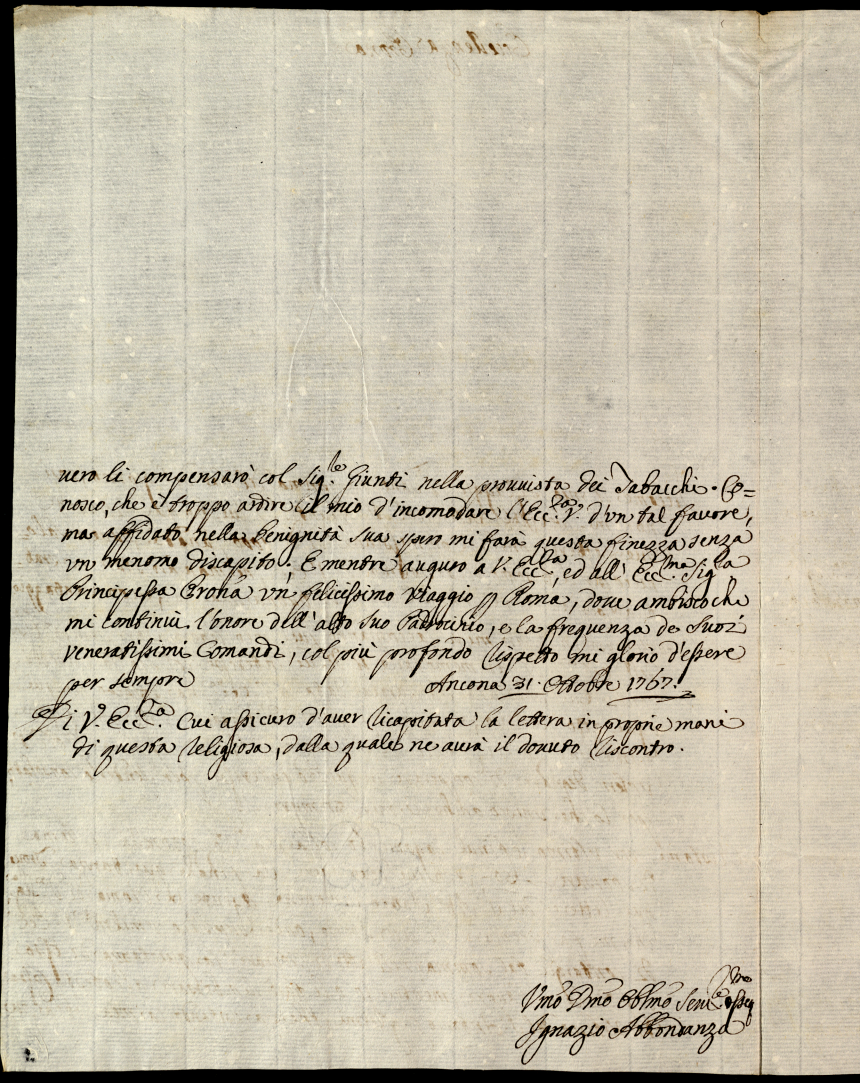 vero li compensarò col Sig.le Giunti nella provvista dei Tabacchi. Co=
nosco, che è troppo ardire il mio d'incomodare l'Ecc.za V. d'un tal favore,
ma affidato nella benignità sua spero mi farà questa finezza senza
un menomo discapito. E mentre auguro a V. Ecc.za, ed all' Ecc.ma Sig.la
Principessa un felicissimo Viaggio p Roma, dove ambisco che
mi continui l'onore dell'alto suo Padrocinio, e la frequenza de Suoi
veneratissimi Comandi, col più profondo rispetto mi glorio d'essere
per sempre Ancona 31. Ottobre 1767.
Di V. Ecc.za Cui assicuro d'aver ricapitata la lettera in proprie mani
di questa religiosa, dalla quale ne avrà il dovuto riscontro.
Umo Dmo Oblmo Serv.e
Ignazio Abbondanza